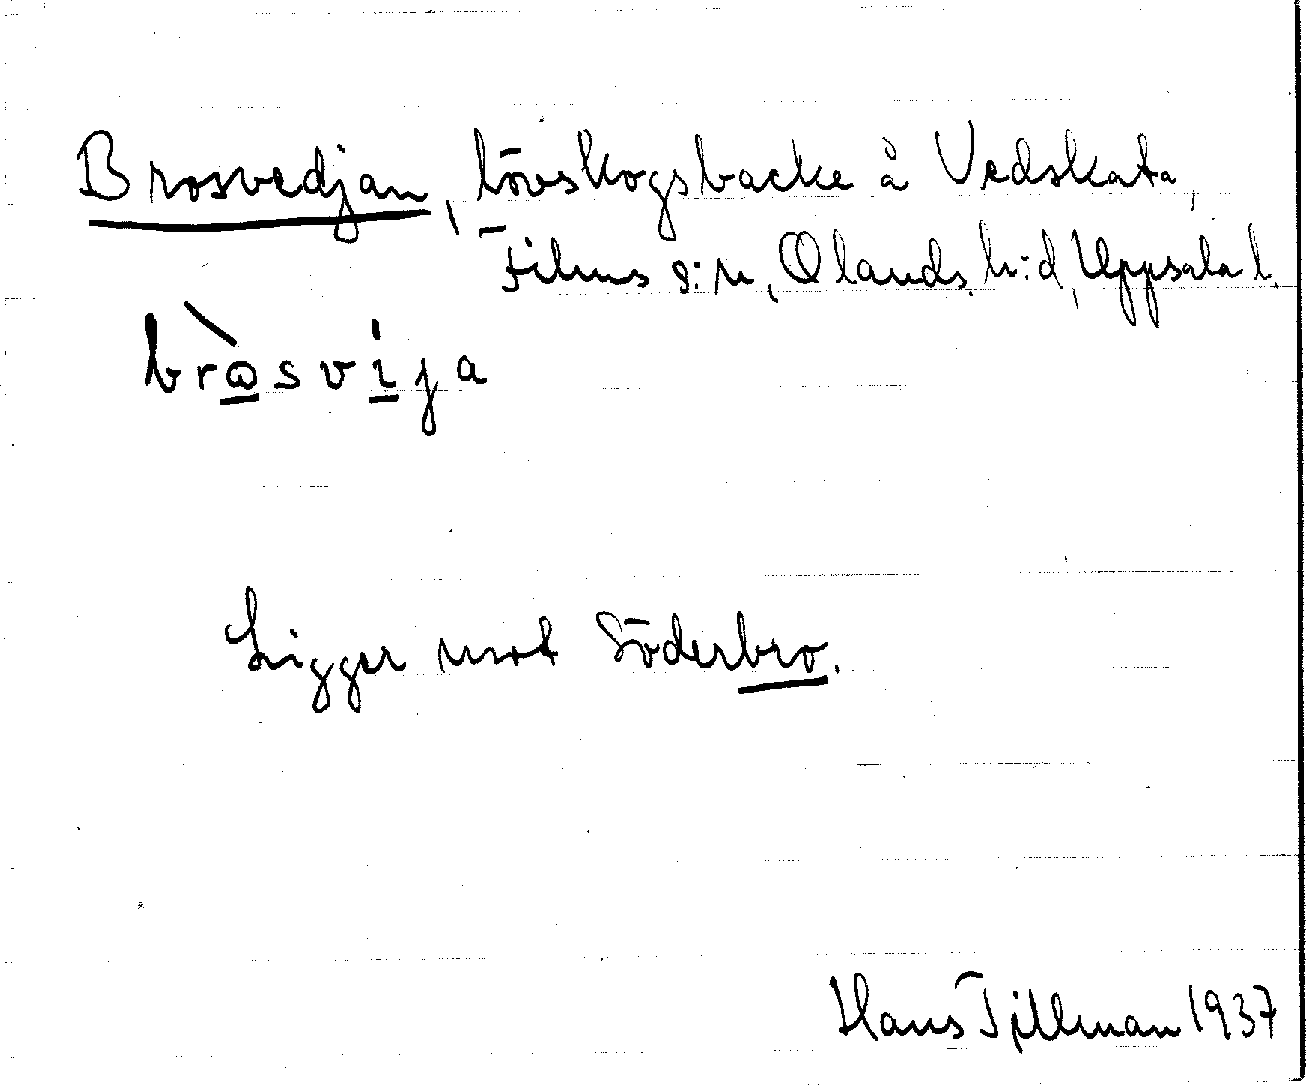 Brosvedjan, lövskogsbacke å Vedskata,
Films s:n, Olands h:d, Uppsala l.
bròsvi̱ja
Ligger mot Söderbro.
Hans Tillman 1937